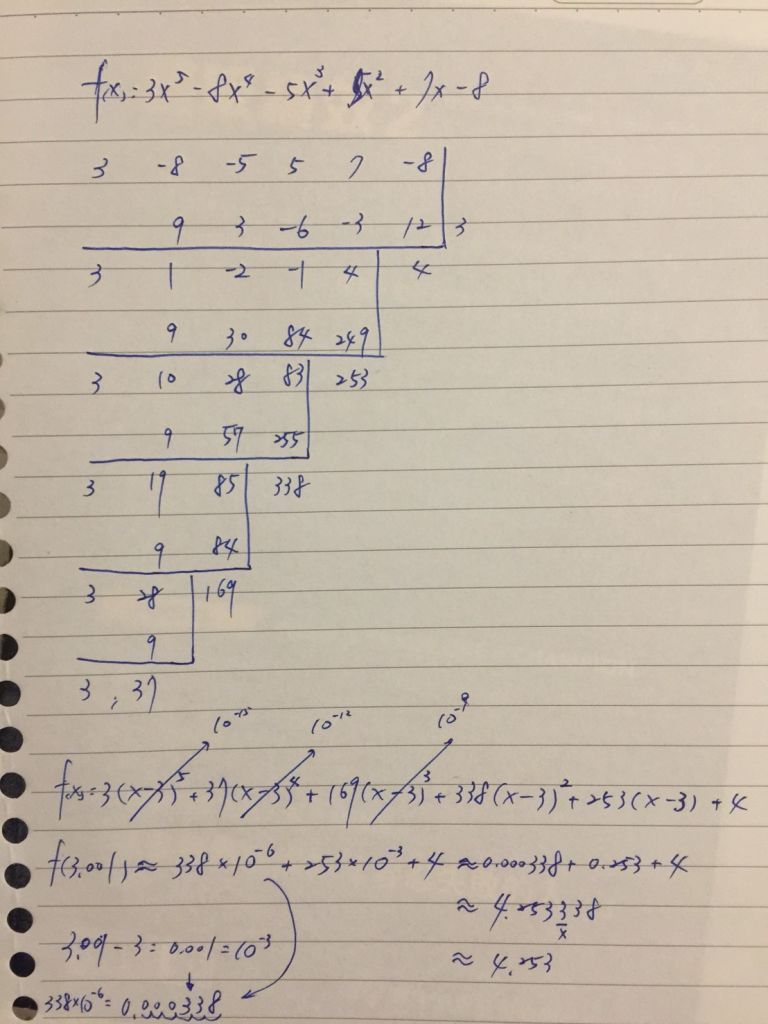 f(x)=3x⁵-8x⁴-5x³+5x²+7x-8
3 -8 -5 5 7 -8
9 3 -6 -3 12 3
3 1 -2 -1 4 4
9 30 84 249
3 10 28 83 253
9 57 255
3 19 85 338
9 84
3 28 169
9
3 , 37
10⁻¹⁵ 10⁻¹² 10⁻⁹
f(x)=3(x-3)⁵+37(x-3)⁴+169(x-3)³+338(x-3)²+253(x-3)+4
f(3.001)≈338×10⁻⁶+253×10⁻³+4≈0.000338+0.253+4
≈4.253338
x
3.001-3=0.001=10⁻³
≈4.253
338×10⁻⁶=0.000338